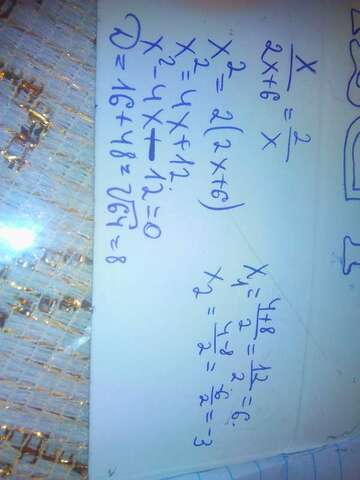 x/(2x+6) = 2/x
x² = 2(2x+6)
x² = 4x+12
x² - 4x - 12 = 0
D = 16+48 = √64 = 8
x₁ = (4+8)/2 = 12/2 = 6
x₂ = (4-8)/2 = 6/2 = -3